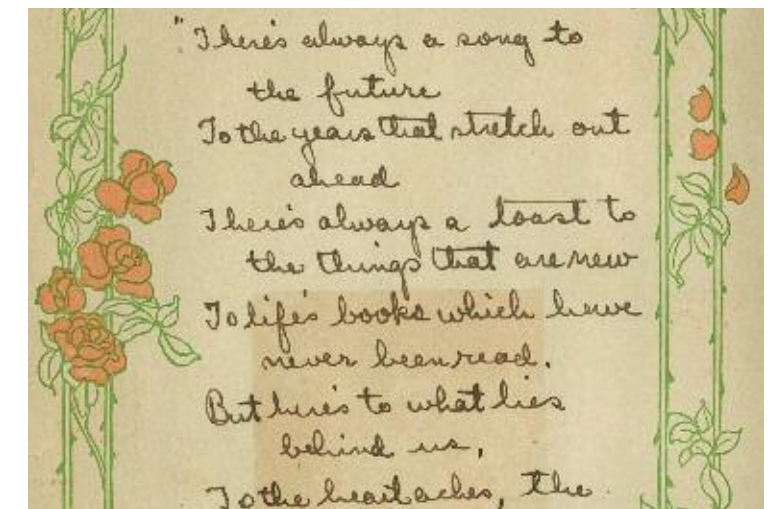 "There's always a song to
the future
To the years that stretch out
ahead
There's always a toast to
the things that are new
To life's books which have
never been read.
But here's to what lies
behind us,
To the heartaches, the